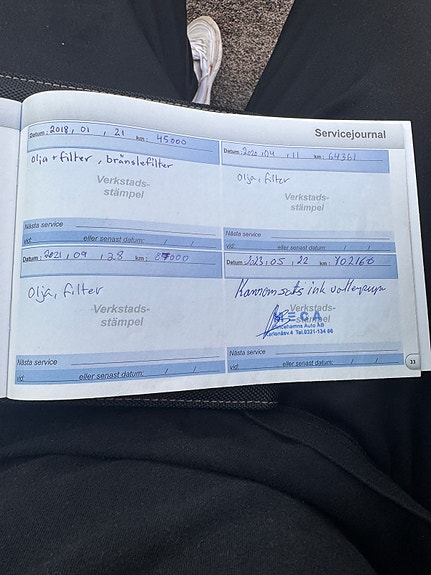 Servicejournal
Datum: 2018, 01, 21 km: 45000
Olja + filter, bränslefilter
Verkstads-
stämpel
Nästa service
vid: eller senast datum: / /
Datum: 2020, 04, 11 km: 64361
Olja, filter
Verkstads-
stämpel
Nästa service
vid: eller senast datum: / /
Datum: 2021, 09, 28 km: 87000
Olja, filter
Verkstads-
stämpel
Nästa service
vid: eller senast datum: / /
Datum: 2023, 05, 22 km: 102160
Kamremsats ink vattenpump
Verkstads-
stämpel
MECA
Auto AB
Tel.0321-134 66
Nästa service
vid: eller senast datum: / /
33